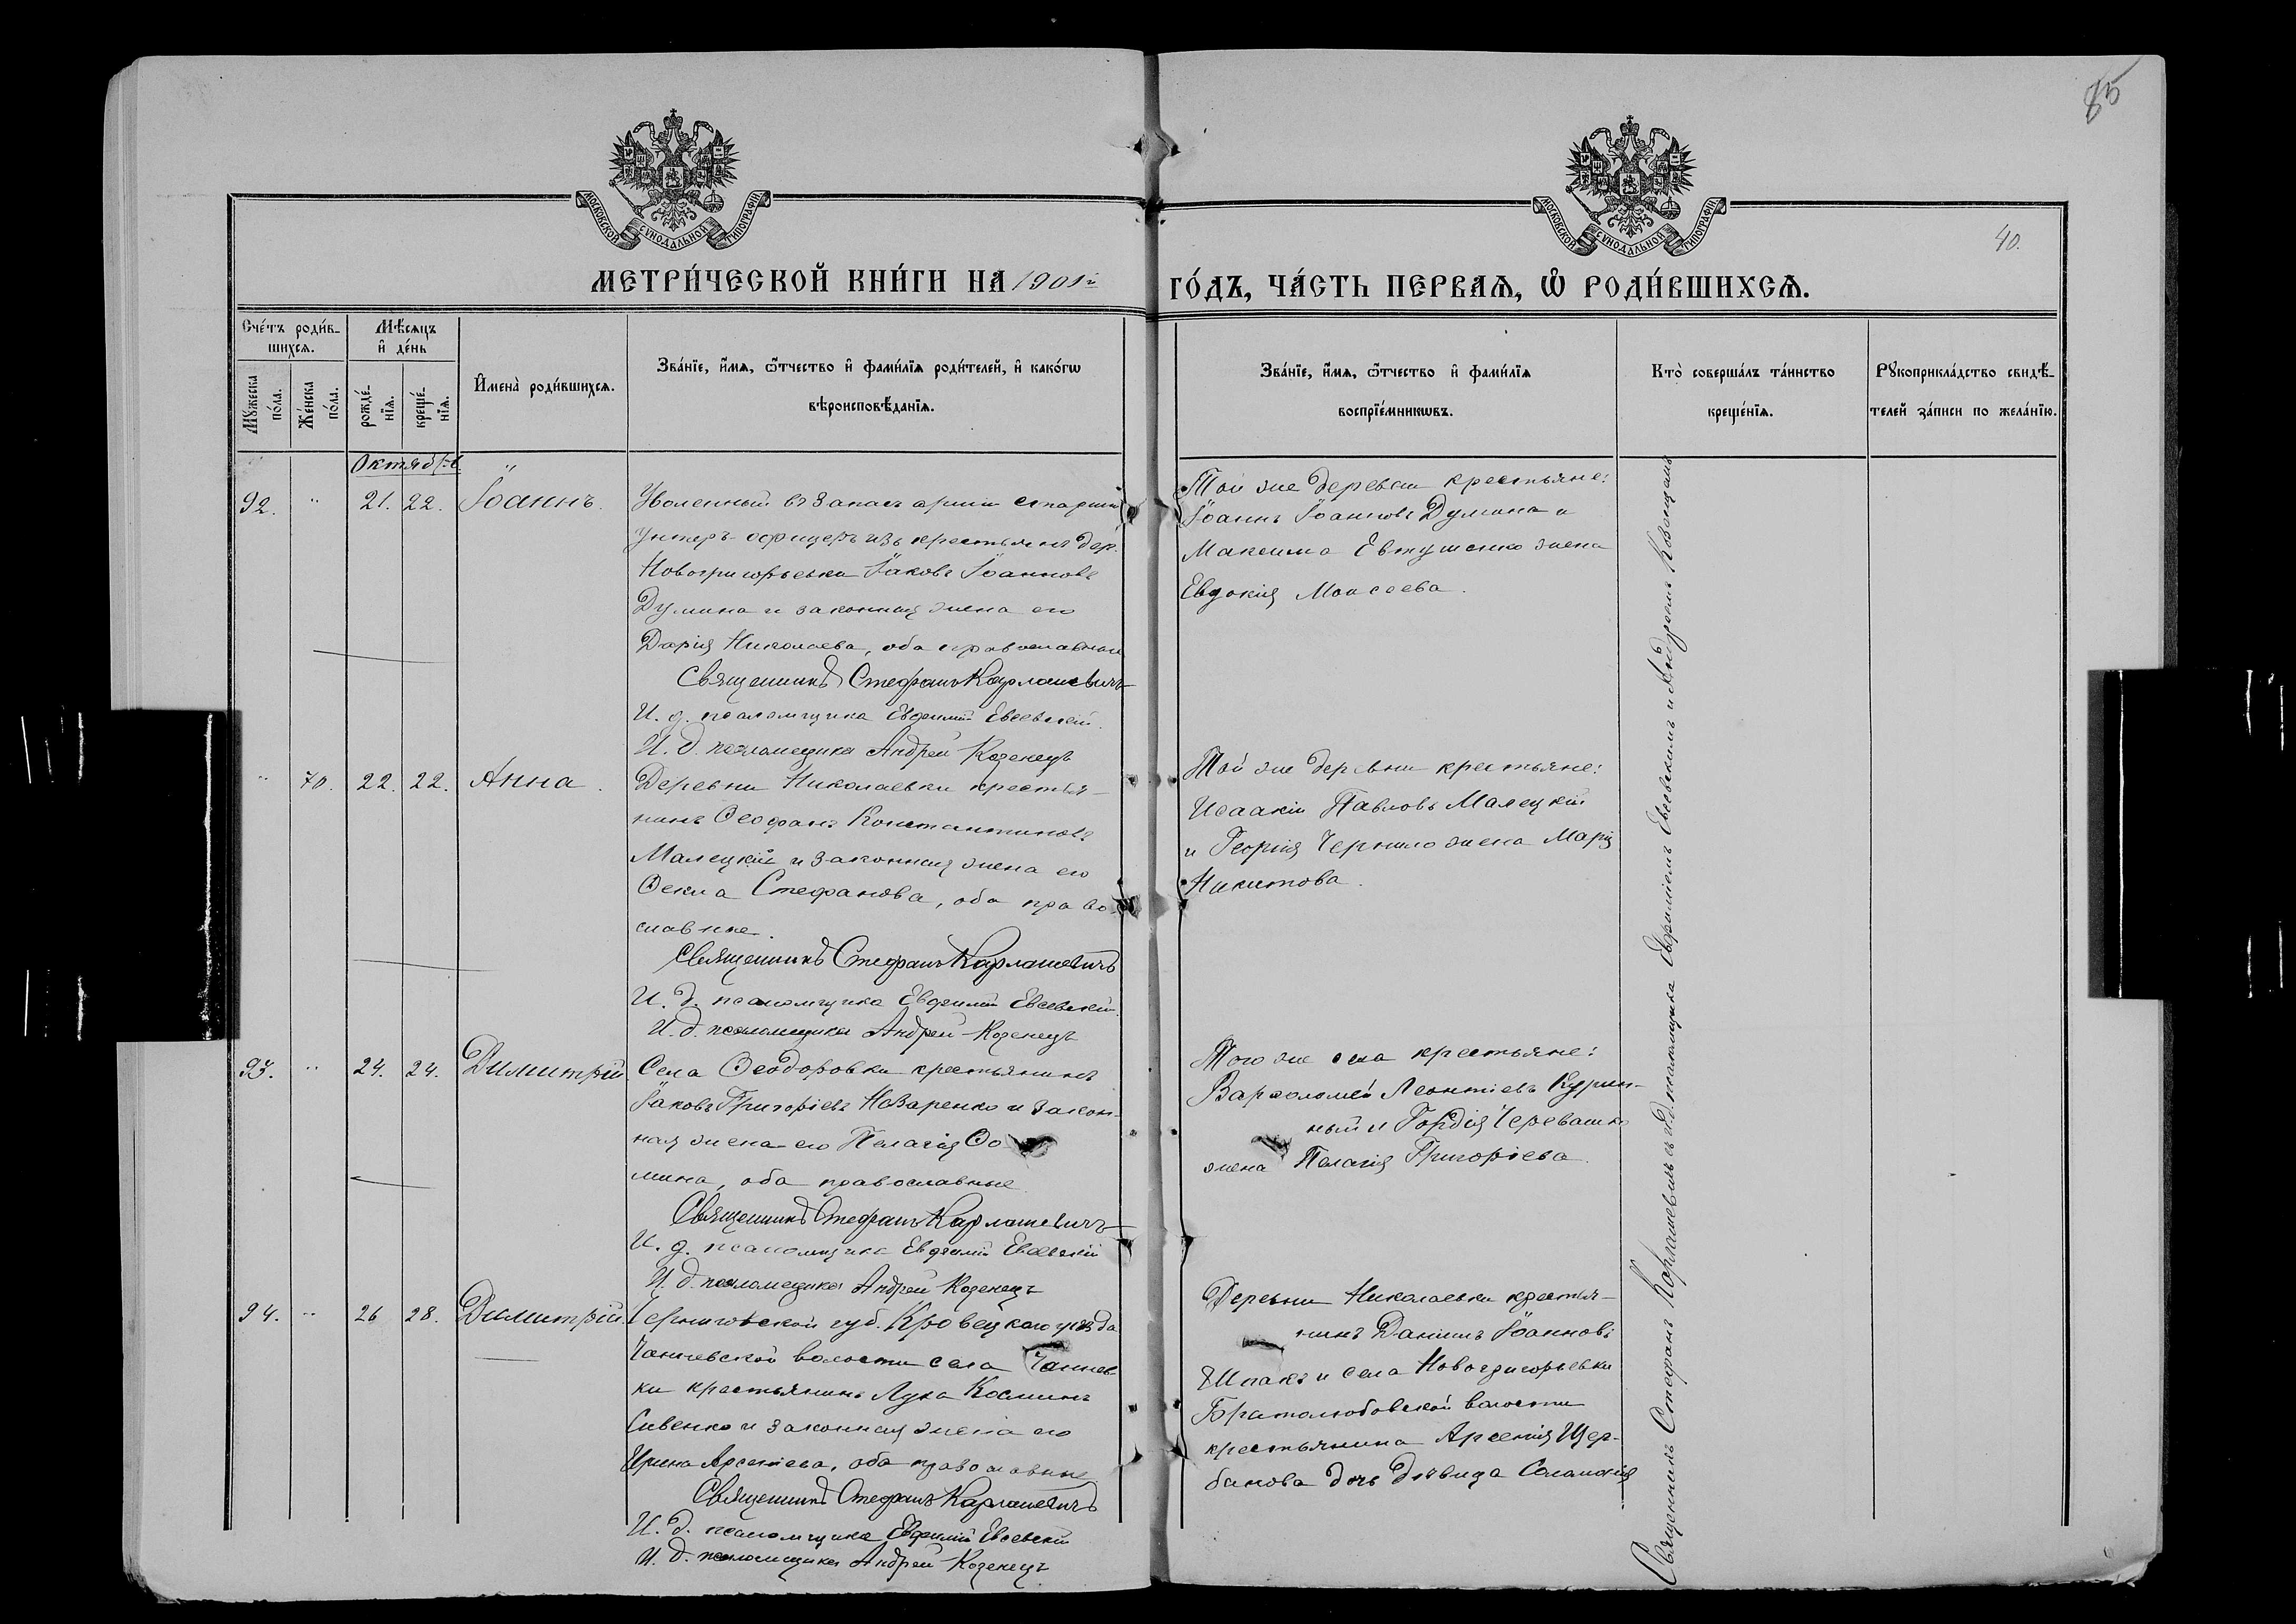 85
МОСКОВСКОЙ СѴНОДАЛЬНОЙ ТИПОГРАФІИ
МОСКОВСКОЙ СѴНОДАЛЬНОЙ ТИПОГРАФІИ
40.
МЕТРИ́ЧЕСКОЙ КНИ́ГИ НА 1901й
ГО́ДЪ, ЧА́СТЬ ПЕРВАѦ, Ѡ҆ РОДИ́ВШИХСѦ.
Сче́тъ роди́в-
шихсѧ.
Мꙋ́жеска по́ла.
Же́нска по́ла.
Мѣ́сѧцъ
и҆ де́нь
рожде́-
нїѧ.
креще́-
нїѧ.
И҆мена̀ роди́вшихсѧ.
Зва́нїе, и҆́мѧ, ѻ҆́тчество и҆ фами́лїѧ роди́телей, и҆ како́гѡ
вѣроисповѣ́данїѧ.
Зва́нїе, и҆́мѧ, ѻ҆́тчество и҆ фами́лїѧ
воспрїе́мникѡвъ.
Кто̀ соверша́лъ та́инство
креще́нїѧ.
Рꙋкоприкла́дство свидѣ́-
телей за́писи по жела́нїю.
Октябрь
92. " 21. 22. Іоаннъ.
Уволенный въ запасъ арміи старшій
унтеръ-офицеръ изъ крестьянъ дер.
Новогригорьевки Іаковъ Іоанновъ
Думина и законная жена его
Дарія Николаева, оба православные
Священникъ Стефанъ Карлашевичъ
И. д. псаломщика Евфимій Евсевскій.
И. д. псаломщика Андрей Козенецъ
Той же деревни крестьяне:
Іоаннъ Іоанновъ Думина и
Максима Евтушенко жена
Евдокія Моисеева.
" 70. 22. 22. Анна.
Деревни Николаевки крестья-
нинъ Ѳеофанъ Константиновъ
Малецкій и законная жена его
Ѳекла Стефанова, оба право-
славные.
Священникъ Стефанъ Карлашевичъ
И. д. псаломщика Евфимій Евсевскій.
И. д. псаломщика Андрей Козенецъ
Той же деревни крестьяне:
Исаакій Павловъ Малецкій
и Георгія Чернило жена Марія
Никитова.
93. " 24. 24. Димитрій
Села Ѳеодоровки крестьянинъ
Іаковъ Григоріевъ Назаренко и закон-
ная жена его Пелагія Ѳо-
мина, оба православные
Священникъ Стефанъ Карлашевичъ
И. д. псаломщика Евфимій Евсевскій
И. д. псаломщика Андрей Козенецъ
Того же села крестьяне:
Варѳоломей Леонтіевъ Курин-
ный и Гордія Черевашко
жена Пелагія Григоріева.
94. " 26 28. Димитрій.
Черниговской губ. Кролевецкаго уѣзда
волости села
ки крестьянинъ Лука Косминъ
Сивенко и законная жена его
Ирина Арсеніева, оба православные
Священникъ Стефанъ Карлашевичъ
И. д. псаломщика Евфимій Евсевскій
И. д. псаломщика Андрей Козенецъ
Деревни Николаевки крестья-
нинъ Даніилъ Іоанновъ
Шпакъ и села Новогригорьевки
Братолюбовской волости
крестьянина Арсенія Щер-
банова дочь дѣвица Соломонія
Священникъ Стефанъ Карлашевичъ съ и. д. псаломщика Евфиміемъ Евсевскимъ и Андреемъ Козенцемъ